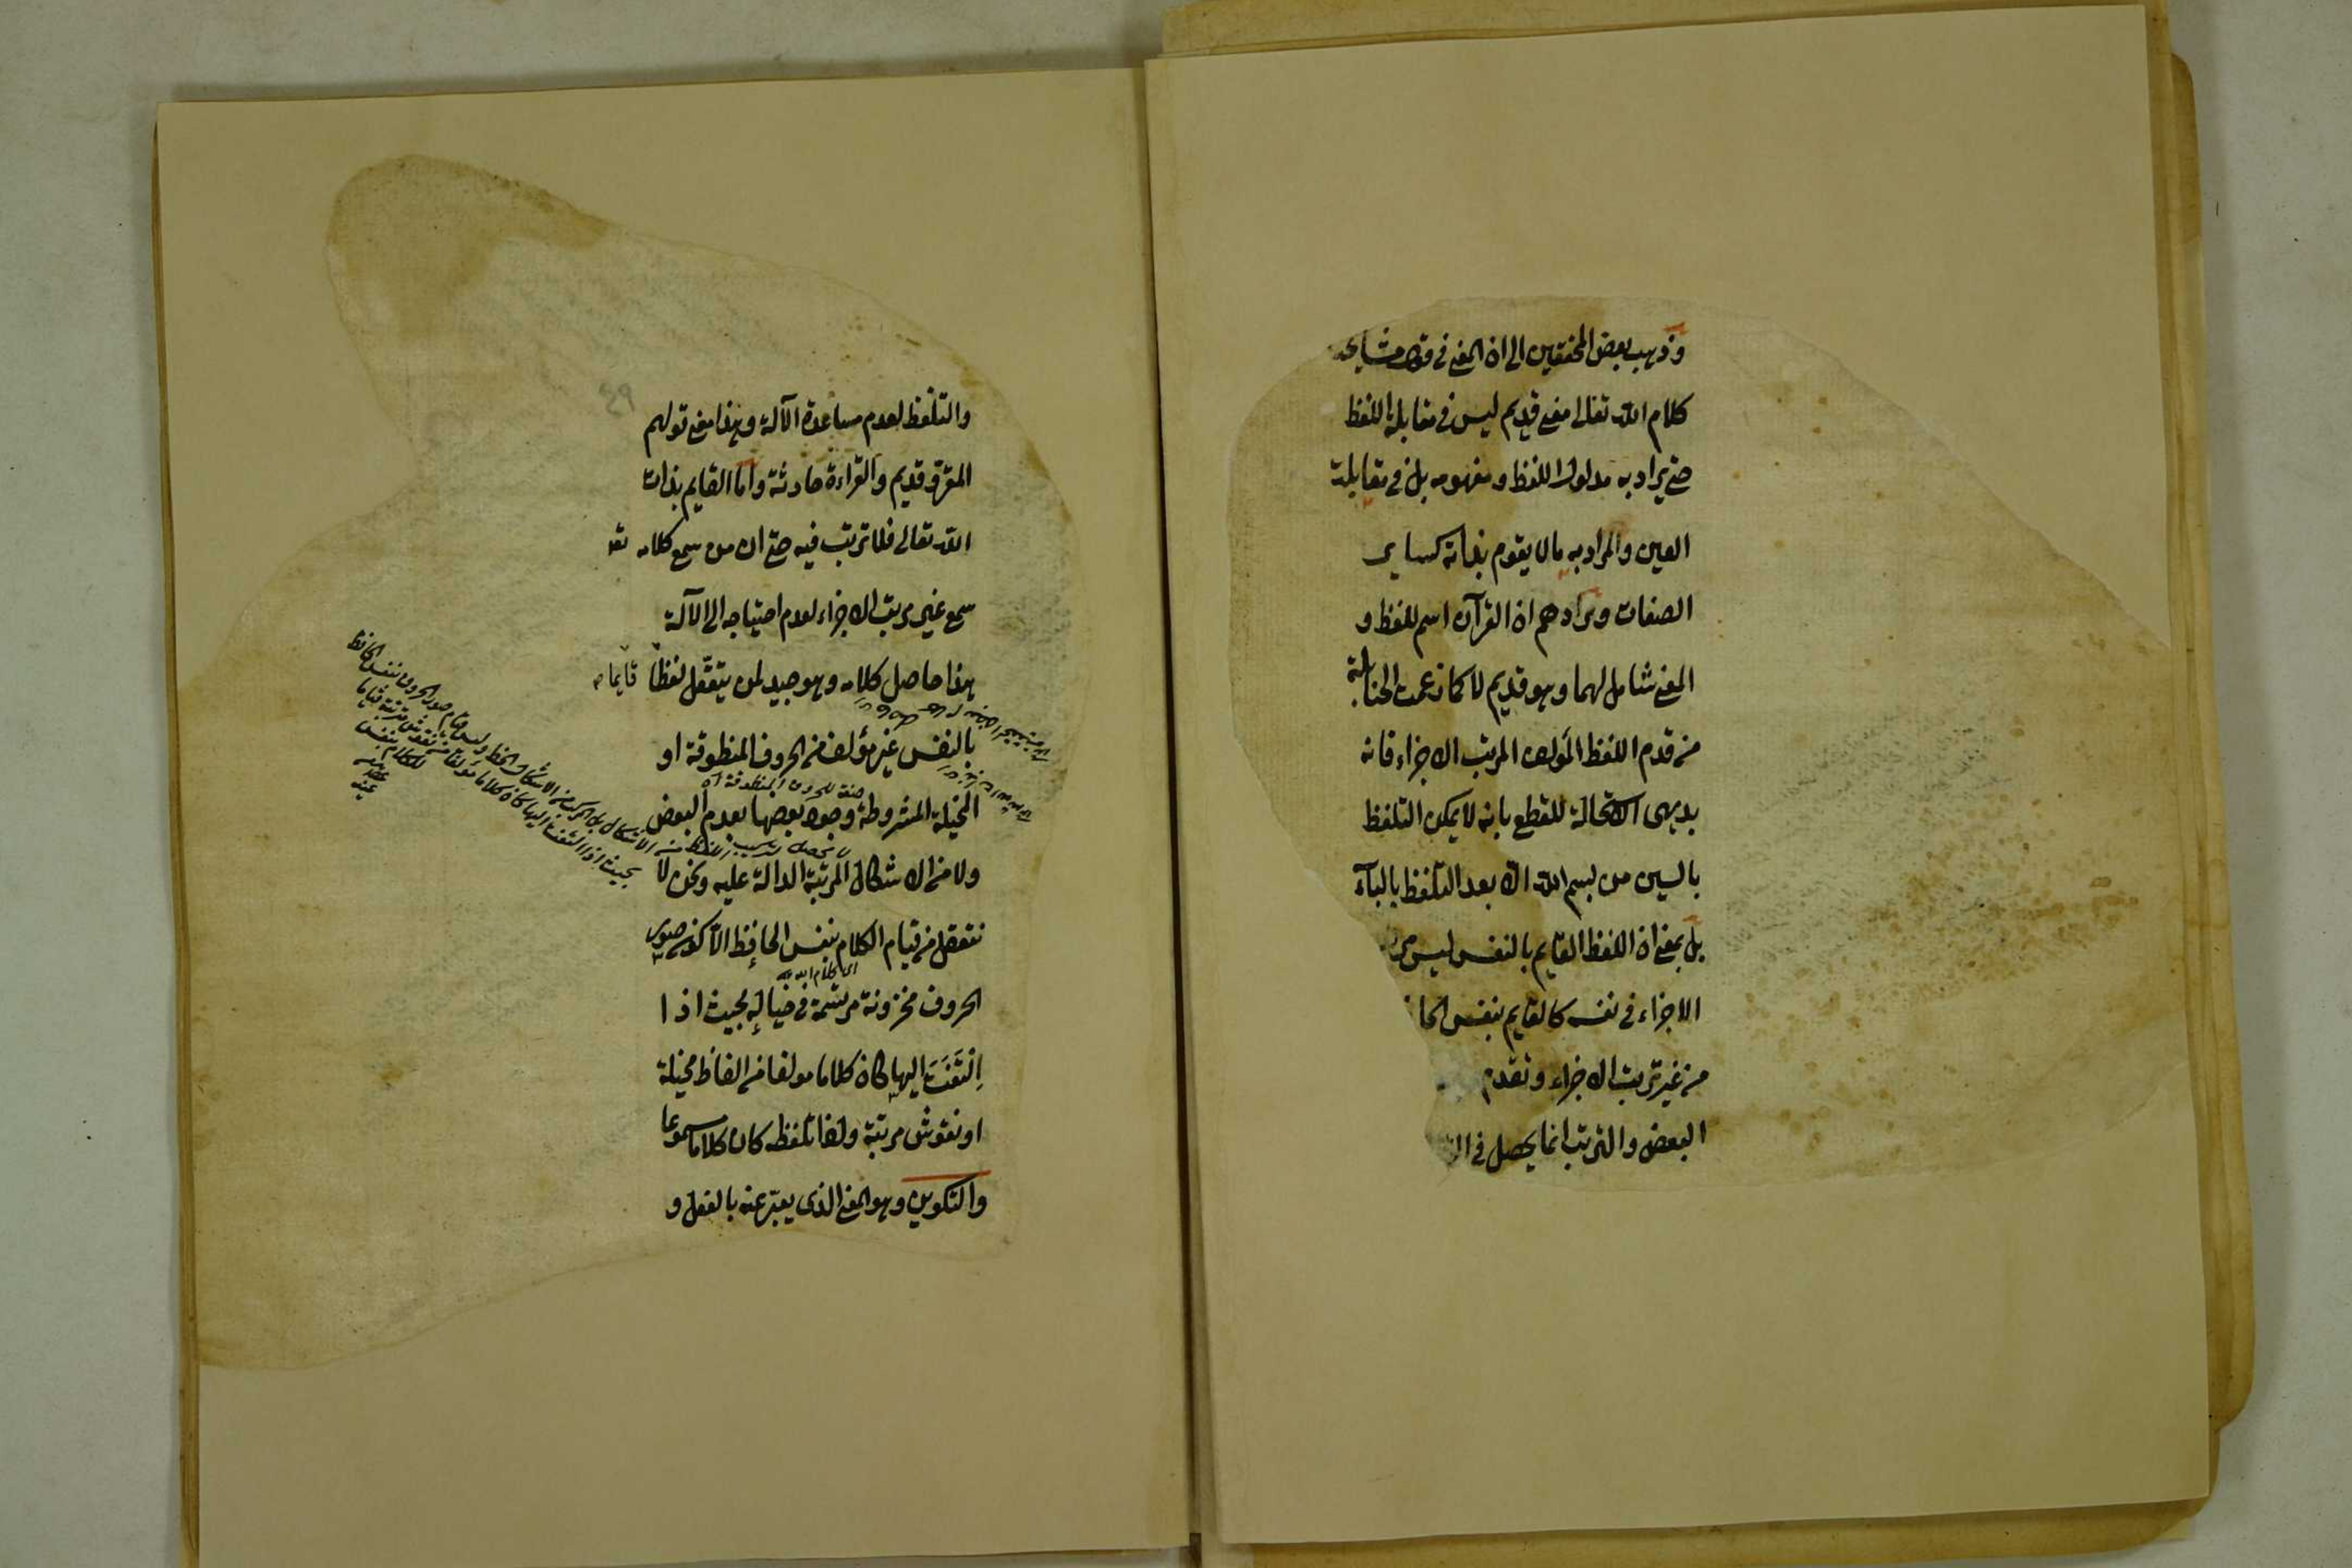 وذهب بعض المحققين الى ان المعنى في قول مشايخنا
كلام الله تعالى معنى قديم ليس في مقابلة اللفظ
حتى يراد به مدلول اللفظ ومفهومه بل في مقابلة
العين والمراد به ما لا يقوم بذاته كساير
الصفات ومرادهم ان القرآن اسم للفظ و
المعنى شامل لهما وهو قديم لا كما زعمت الحنابلة
من قدم اللفظ المؤلف المرتب الاجزاء فانه
بديهى الاستحالة للقطع بانه لا يمكن التلفظ
بالسين من بسم الله الا بعد التلفظ بالباء
بل بمعنى ان اللفظ القايم بالنفس ليس
الاجزاء في نفسه كالقايم بنفس
من غير ترتب الاجزاء وتقدم
البعض والترتب انما يحصل في
٤٩
والتلفظ لعدم مساعدة الآلة وهذا معنى قولهم
المقرؤ قديم والقراءة حادثة واما القايم بذات
الله تعالى فلا ترتب فيه حتى ان من سمع كلامه تع
سمع غير مرتب الاجزاء لعدم احتياجه الى الآلة
هذا حاصل كلامه وهو جيد لمن يتعقّل لفظًا قايما
بالنفس غير مؤلف من الحروف المنطوقة او
صفة للحروف المنطوقة
المخيلة المشروطة وجود بعضها بعدم البعض
ولا من الاشكال المرتبة الدالة عليه ونحن لا
نتعقل من قيام الكلام بنفس الحافظ الا كون صور
اى كلام الله
الحروف مخزونة مرتسمة في خياله بحيث اذا
اِلْتَفَتَ اليها كان كلاما مولفا من الفاظ مخيلة
او نقوش مرتبة واذا تلفظ كان كلاما مسموعا
والتكوين وهو المعنى الذى يعبّر عنه بالفعل و